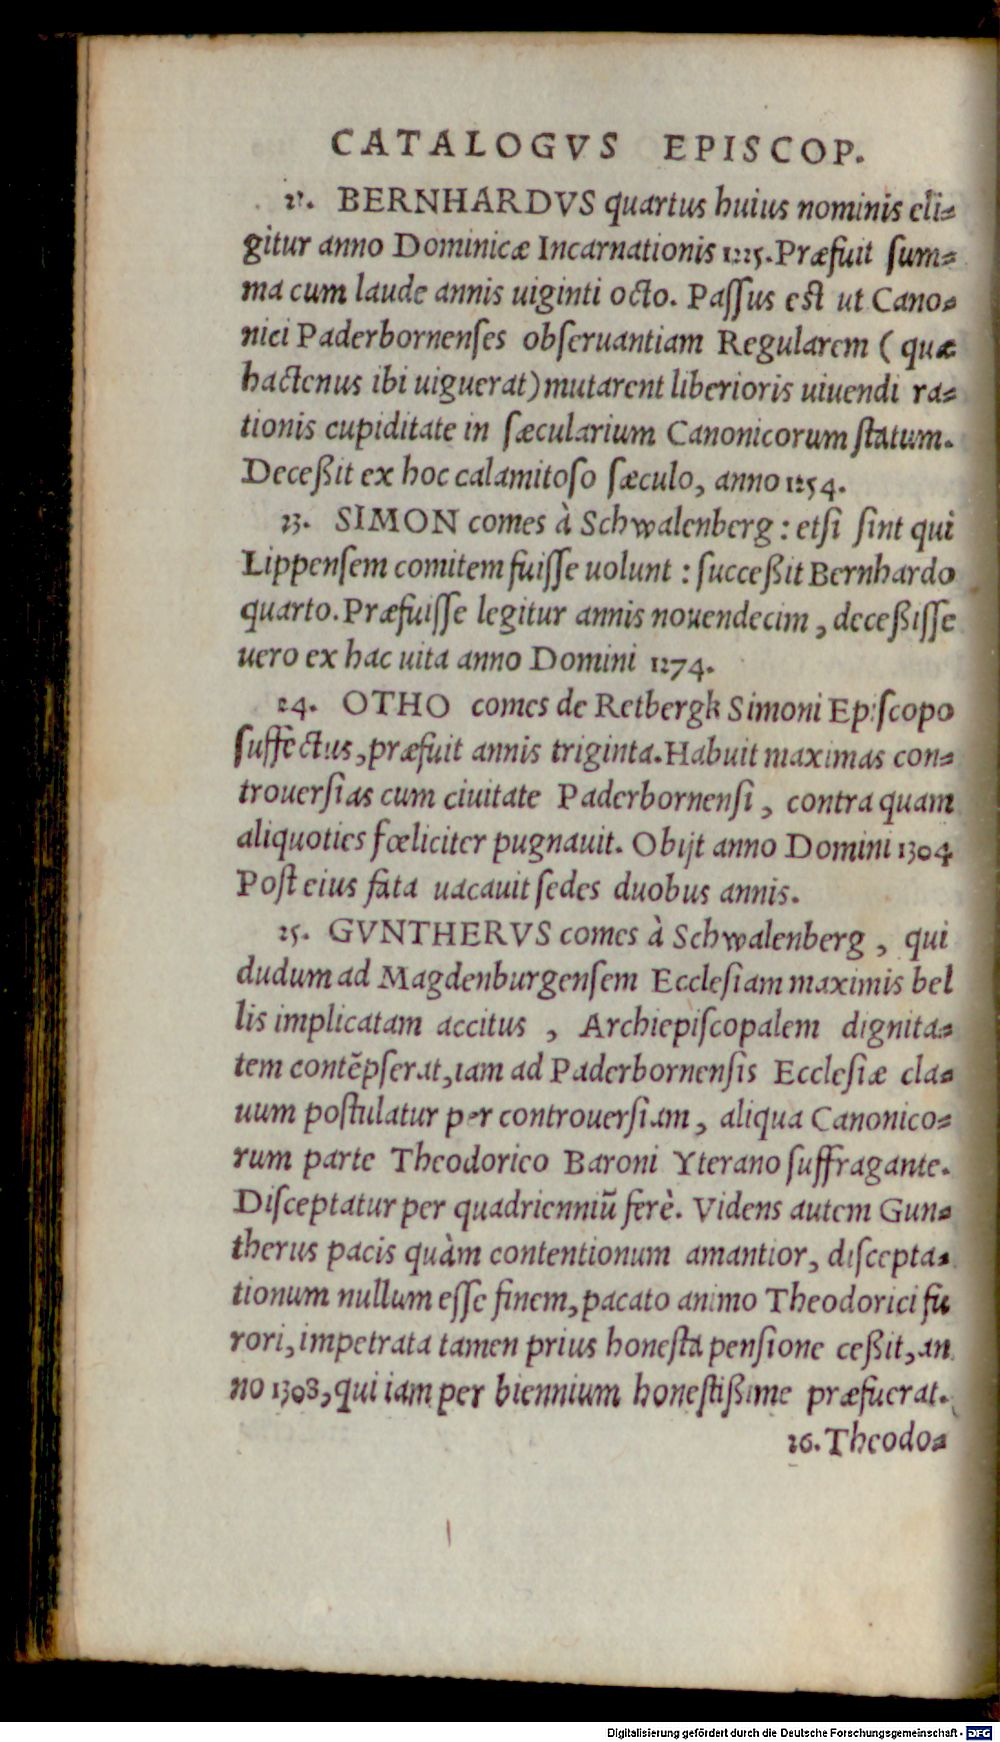 CATALOGVS EPISCOP.
BERNHARDVS quartus huius nominis eli-
gitur anno Dominicæ Incarnationis 1225. Præfuit sum-
ma cum laude annis uiginti octo. Passus est ut Cano-
nici Paderbornenses obseruantiam Regularem ( quæ
hactenus ibi uiguerat) mutarent liberioris uiuendi ra-
tionis cupiditate in sæcularium Canonicorum statum.
Deceßit ex hoc calamitoso sæculo, anno 1254.
23. SIMON comes à Schwalenberg : etsi sint qui
Lippensem comitem fuisse uolunt : succeßit Bernhardo
quarto. Præfuisse legitur annis nouendecim , deceßisse
uero ex hac uita anno Domini 1274.
24. OTHO comes de Retbergk Simoni Episcopo
suffectus, præfuit annis triginta. Habuit maximas con-
trouersias cum ciuitate Paderbornensi , contra quam
aliquoties fœliciter pugnauit. Obijt anno Domini 1304
Post eius fata uacauit sedes duobus annis.
25. GVNTHERVS comes à Schwalenberg , qui
dudum ad Magdenburgensem Ecclesiam maximis bel
lis implicatam accitus , Archiepiscopalem dignita-
tem contẽpserat, iam ad Paderbornensis Ecclesiæ cla-
uum postulatur per controuersiam, aliqua Canonico-
rum parte Theodorico Baroni Yterano suffragante.
Disceptatur per quadrienniũ ferè. Videns autem Gun-
therus pacis quàm contentionum amantior, discepta-
tionum nullum esse finem, pacato animo Theodorici fu
rori, impetrata tamen prius honesta pensione ceßit, an
no 1308, qui iam per biennium honestißime præfuerat.
26. Theodo-
Digitalisierung gefördert durch die Deutsche Forschungsgemeinschaft - DFG